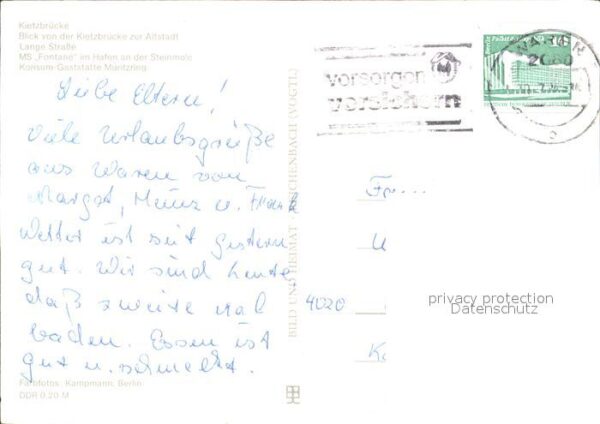 Kietzbrücke
Blick von der Kietzbrücke zur Altstadt
Lange Straße
MS „Fontane" im Hafen an der Steinmole
Konsum-Gaststätte Müritzring
Liebe Eltern!
Viele Urlaubsgrüße
aus Waren von
Margot, Heinz u. Frank
Wetter ist seit gestern
gut. Wir sind heute
das zweite mal
baden. Essen ist
gut u. schmeckt.
Farbfotos: Kampmann, Berlin
DDR 0,20 M
BILD UND HEIMAT REICHENBACH (VOGTL)
vorsorgen
versichern
WAREN
2060
10
Fr...
U
4020
K
privacy protection
Datenschutz